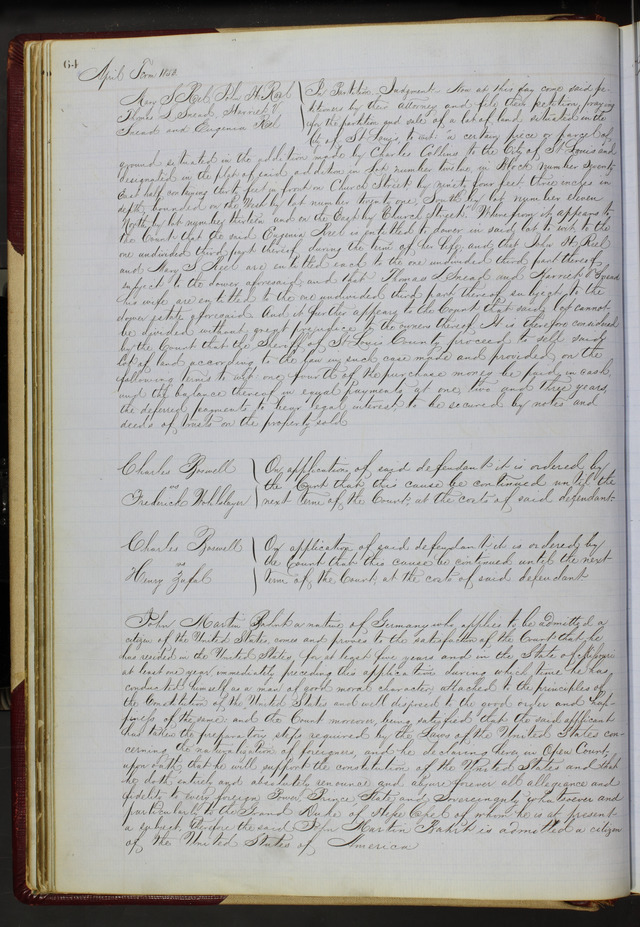 64
April Term
Mary S Keel, John H. Keel
Thomas L Snead, Harriet &
Snead and Eugenia Keel
In Partition Judgment Now at this day come said pe-
titioners by their attorney and file their petition, praying
for the partition and sale of a lot of land situated in the
City of St. Louis to wit: a certain piece or parcel of
ground situated in the addition made by Charles Collins to the City of St Louis and
designated in the plat of said addition as lot number twelve in Block number seventy
East half containing thirty feet in front on Church Street by ninety four feet three inches in
depth, bounded on the West by lot number twenty one, South by lot number eleven
North by lot number thirteen and on the East by Church Street. When from it appears to
the Court that the said Eugenia Keel is entitled to dower in said lot to wit to the
one undivided third part thereof during the term of her life and that John H. Keel
and Mary S Keel are entitled each to the one undivided third part thereof
subject to the dower aforesaid and that Thomas L Snead and Harriet Snead
his wife are entitled to the one undivided third part thereof subject to the
dower estate aforesaid And it further appears to the Court that said lot cannot
be divided without great prejudice to the owners thereof It is therefore considered
by the Court that the Sheriff of St Louis County proceed to sell said
lot of land according to the law in such case made and provided on the
following terms to wit one fourth of the purchase money be paid in cash
and the balance thereof in equal payments at one two and three years
the deferred payments to bear legal interest, to be secured by notes and
deeds of trust on the property sold
Charles Boswell
vs
Frederick
On application of said defendant it is ordered by
the Court that this cause be continued until the
next term of the Court, at the costs of said defendant
Charles Boswell
vs
Henry Zufal
On application of said defendant it is ordered by
the Court that this cause be continued until the next
Term of the Court, at the costs of said defendant
John Martin a native of Germany who applies to be admitted a
citizen of the United States, comes and proves to the satisfaction of the Court that he
has resided in the United States for at least five years and in the State of Missouri
at least one year, immediately preceding this application during which time he has
conducted himself as a man of good moral character, attached to the principles of
the Constitution of the United States and well disposed to the good order and hap-
piness of the same and the Court moreover, being satisfied that the said applicant
has taken the preparatory steps required by the Laws of the United States con-
cerning the naturalization of foreigners, and he declaring here in Open Court
upon oath that he will support the constitution of the United States and that
he doth entirely and absolutely renounce and abjure forever all allegiance and
fidelity to every foreign Power, Prince State and Sovereignty whatsoever and
particularly to the Grand Duke of Hesse of whom he is at present
a subject, therefore the said John Martin is admitted a citizen
of the United States of America